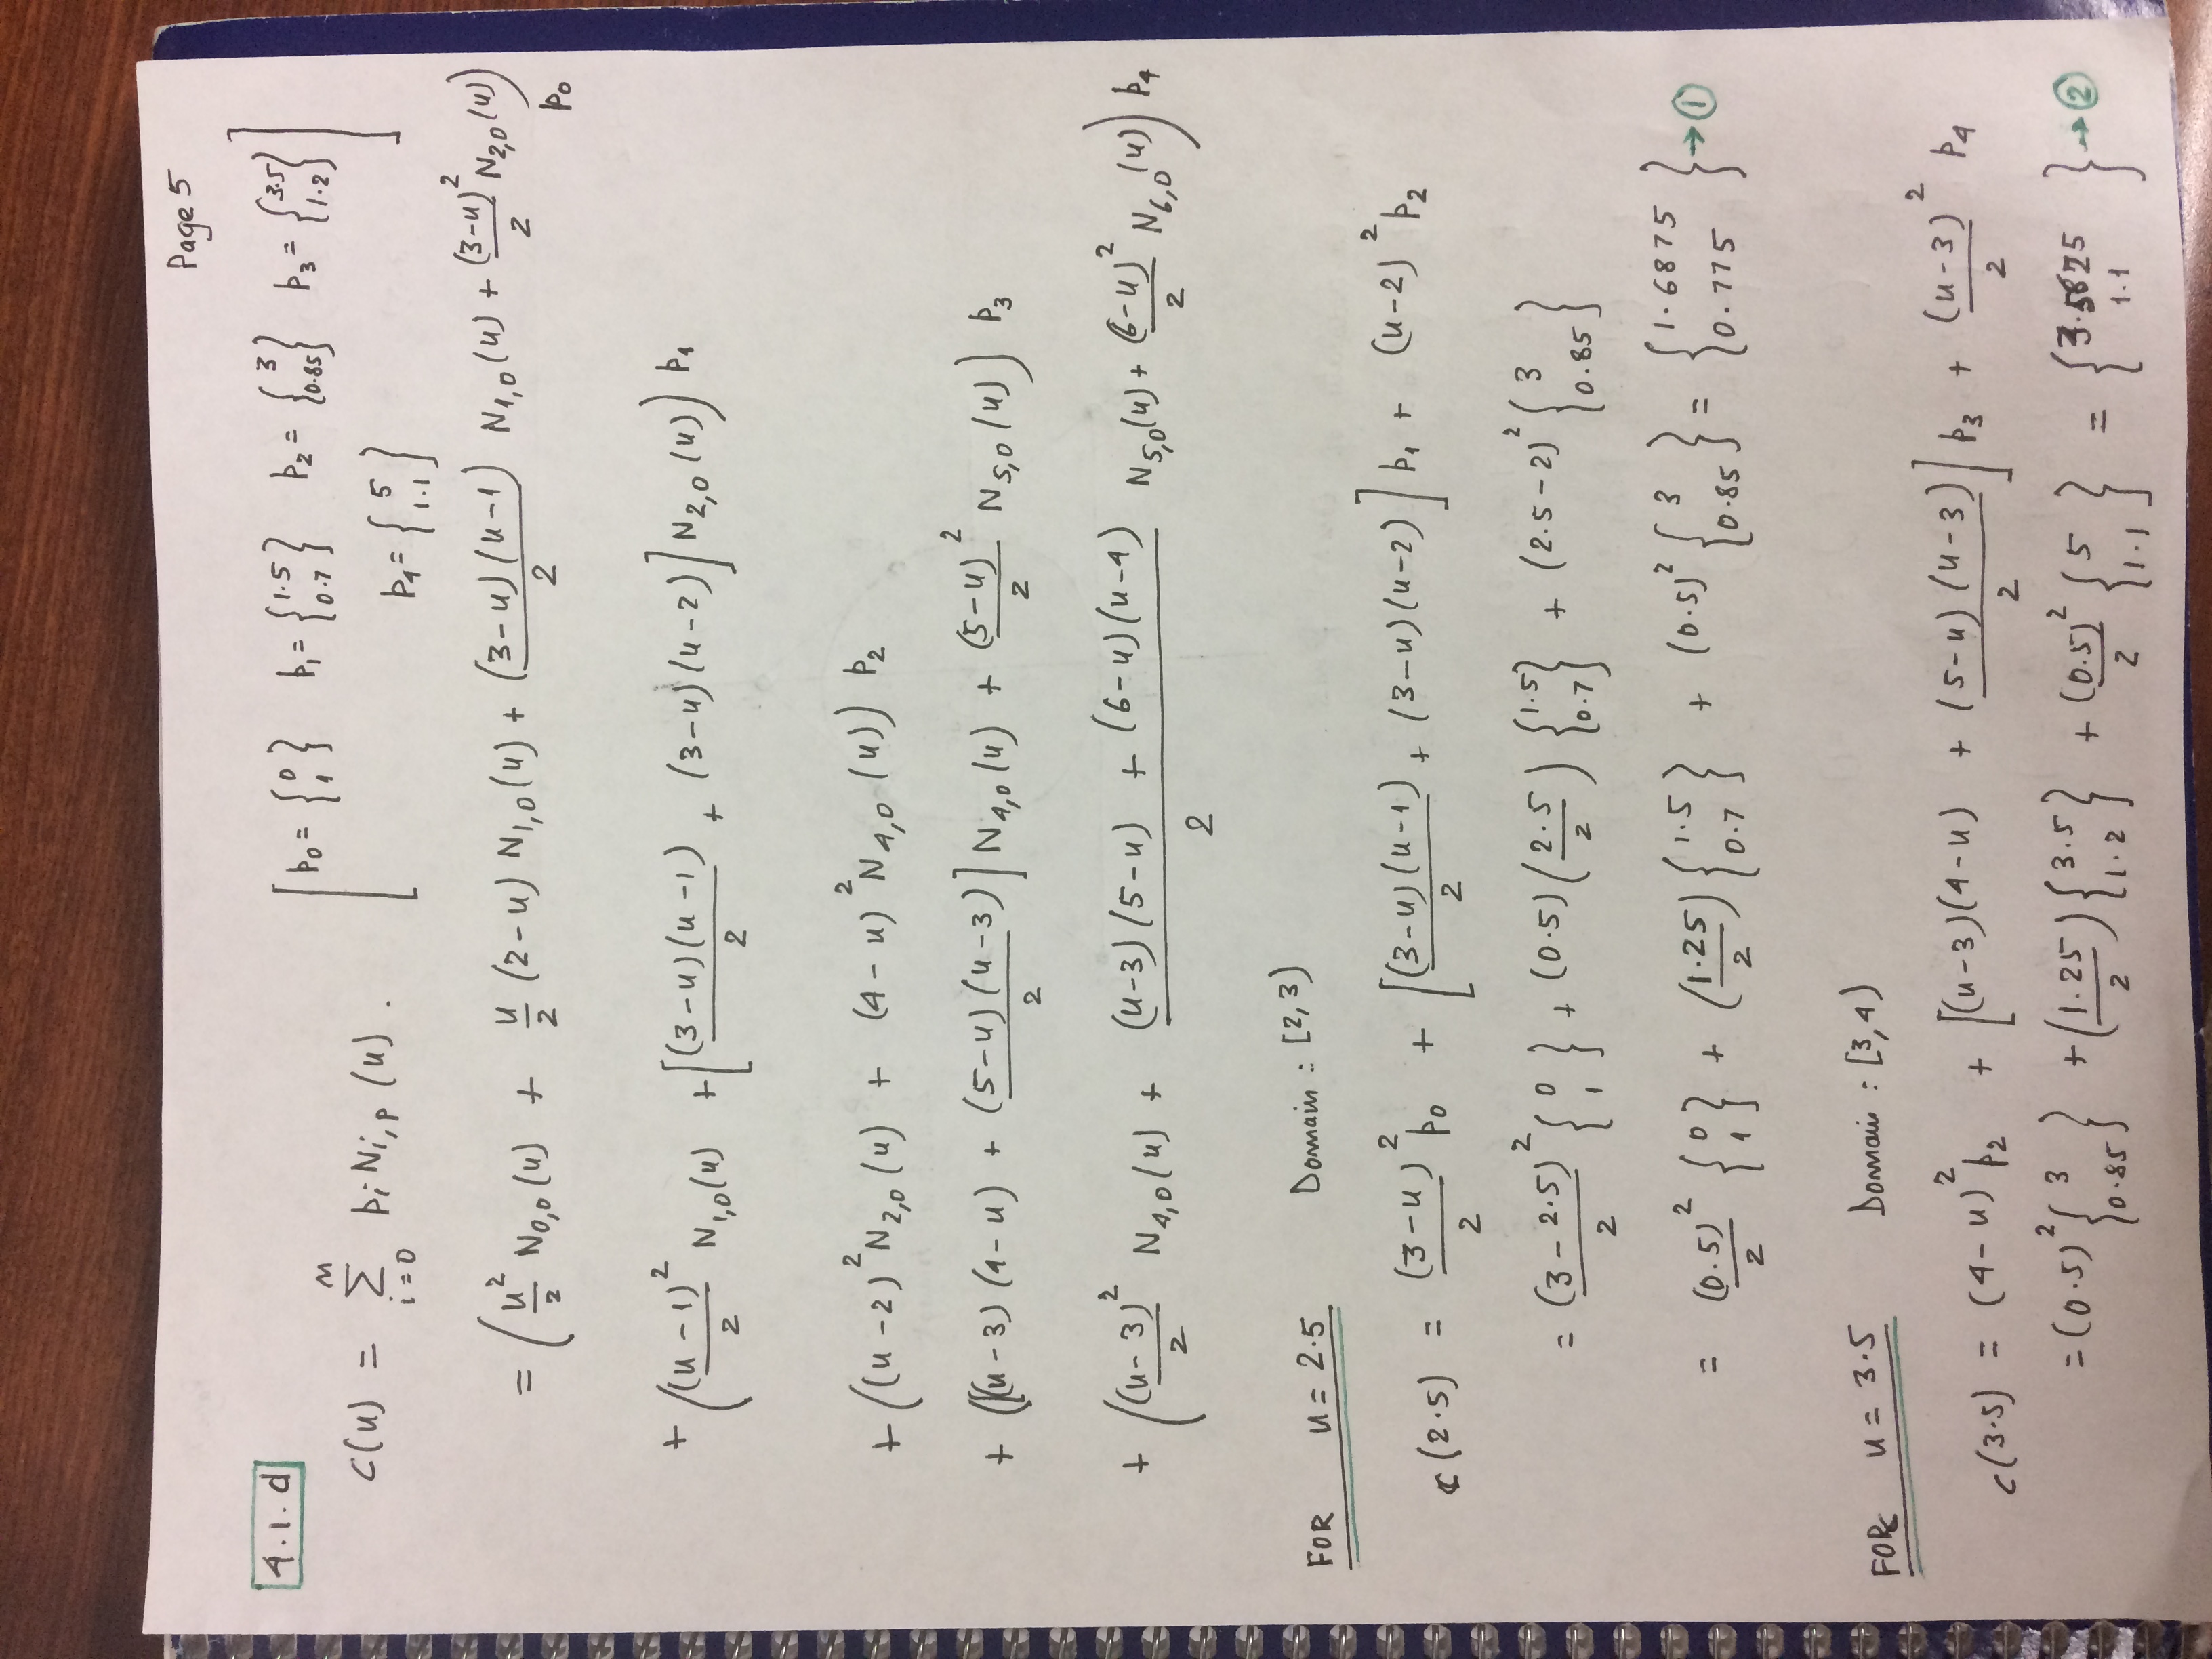 Page 5
4.1.d
[ p₀ = {0 1} p₁ = {1.5 0.7} p₂ = {3 0.85} p₃ = {3.5 1.2}
p₄ = {5 1.1} ]
c(u) = Σ_{i=0}^{M} pᵢ N_{i,p}(u).
= (u²/2 N_{0,0}(u) + u/2 (2-u) N_{1,0}(u) + (3-u)(u-1)/2 N_{1,0}(u) + (3-u)²/2 N_{2,0}(u)) p₀
+ ((u-1)²/2 N_{1,0}(u) + [(3-u)(u-1)/2 + (3-u)(u-2)] N_{2,0}(u)) p₁
+ ((u-2)² N_{2,0}(u) + (4-u)² N_{4,0}(u)) p₂
+ ([(u-3)(4-u) + (5-u)(u-3)/2] N_{4,0}(u) + (5-u)²/2 N_{5,0}(u)) p₃
+ ((u-3)²/2 N_{4,0}(u) + ((u-3)(5-u) + (6-u)(u-4))/2 N_{5,0}(u) + (6-u)²/2 N_{6,0}(u)) p₄
FOR u = 2.5 Domain : [2,3)
c(2.5) = (3-u)²/2 p₀ + [(3-u)(u-1)/2 + (3-u)(u-2)] p₁ + (u-2)² p₂
= (3-2.5)²/2 {0 1} + (0.5)(2.5/2) {1.5 0.7} + (2.5-2)² {3 0.85}
= (0.5)²/2 {0 1} + (1.25/2) {1.5 0.7} + (0.5)² {3 0.85} = {1.6875 0.775} → ①
FOR u = 3.5 Domain : [3,4)
c(3.5) = (4-u)² p₂ + [(u-3)(4-u) + (5-u)(u-3)/2] p₃ + (u-3)²/2 p₄
= (0.5)² {3 0.85} + (1.25/2) {3.5 1.2} + (0.5)²/2 {5 1.1} = { 1.1} → ②